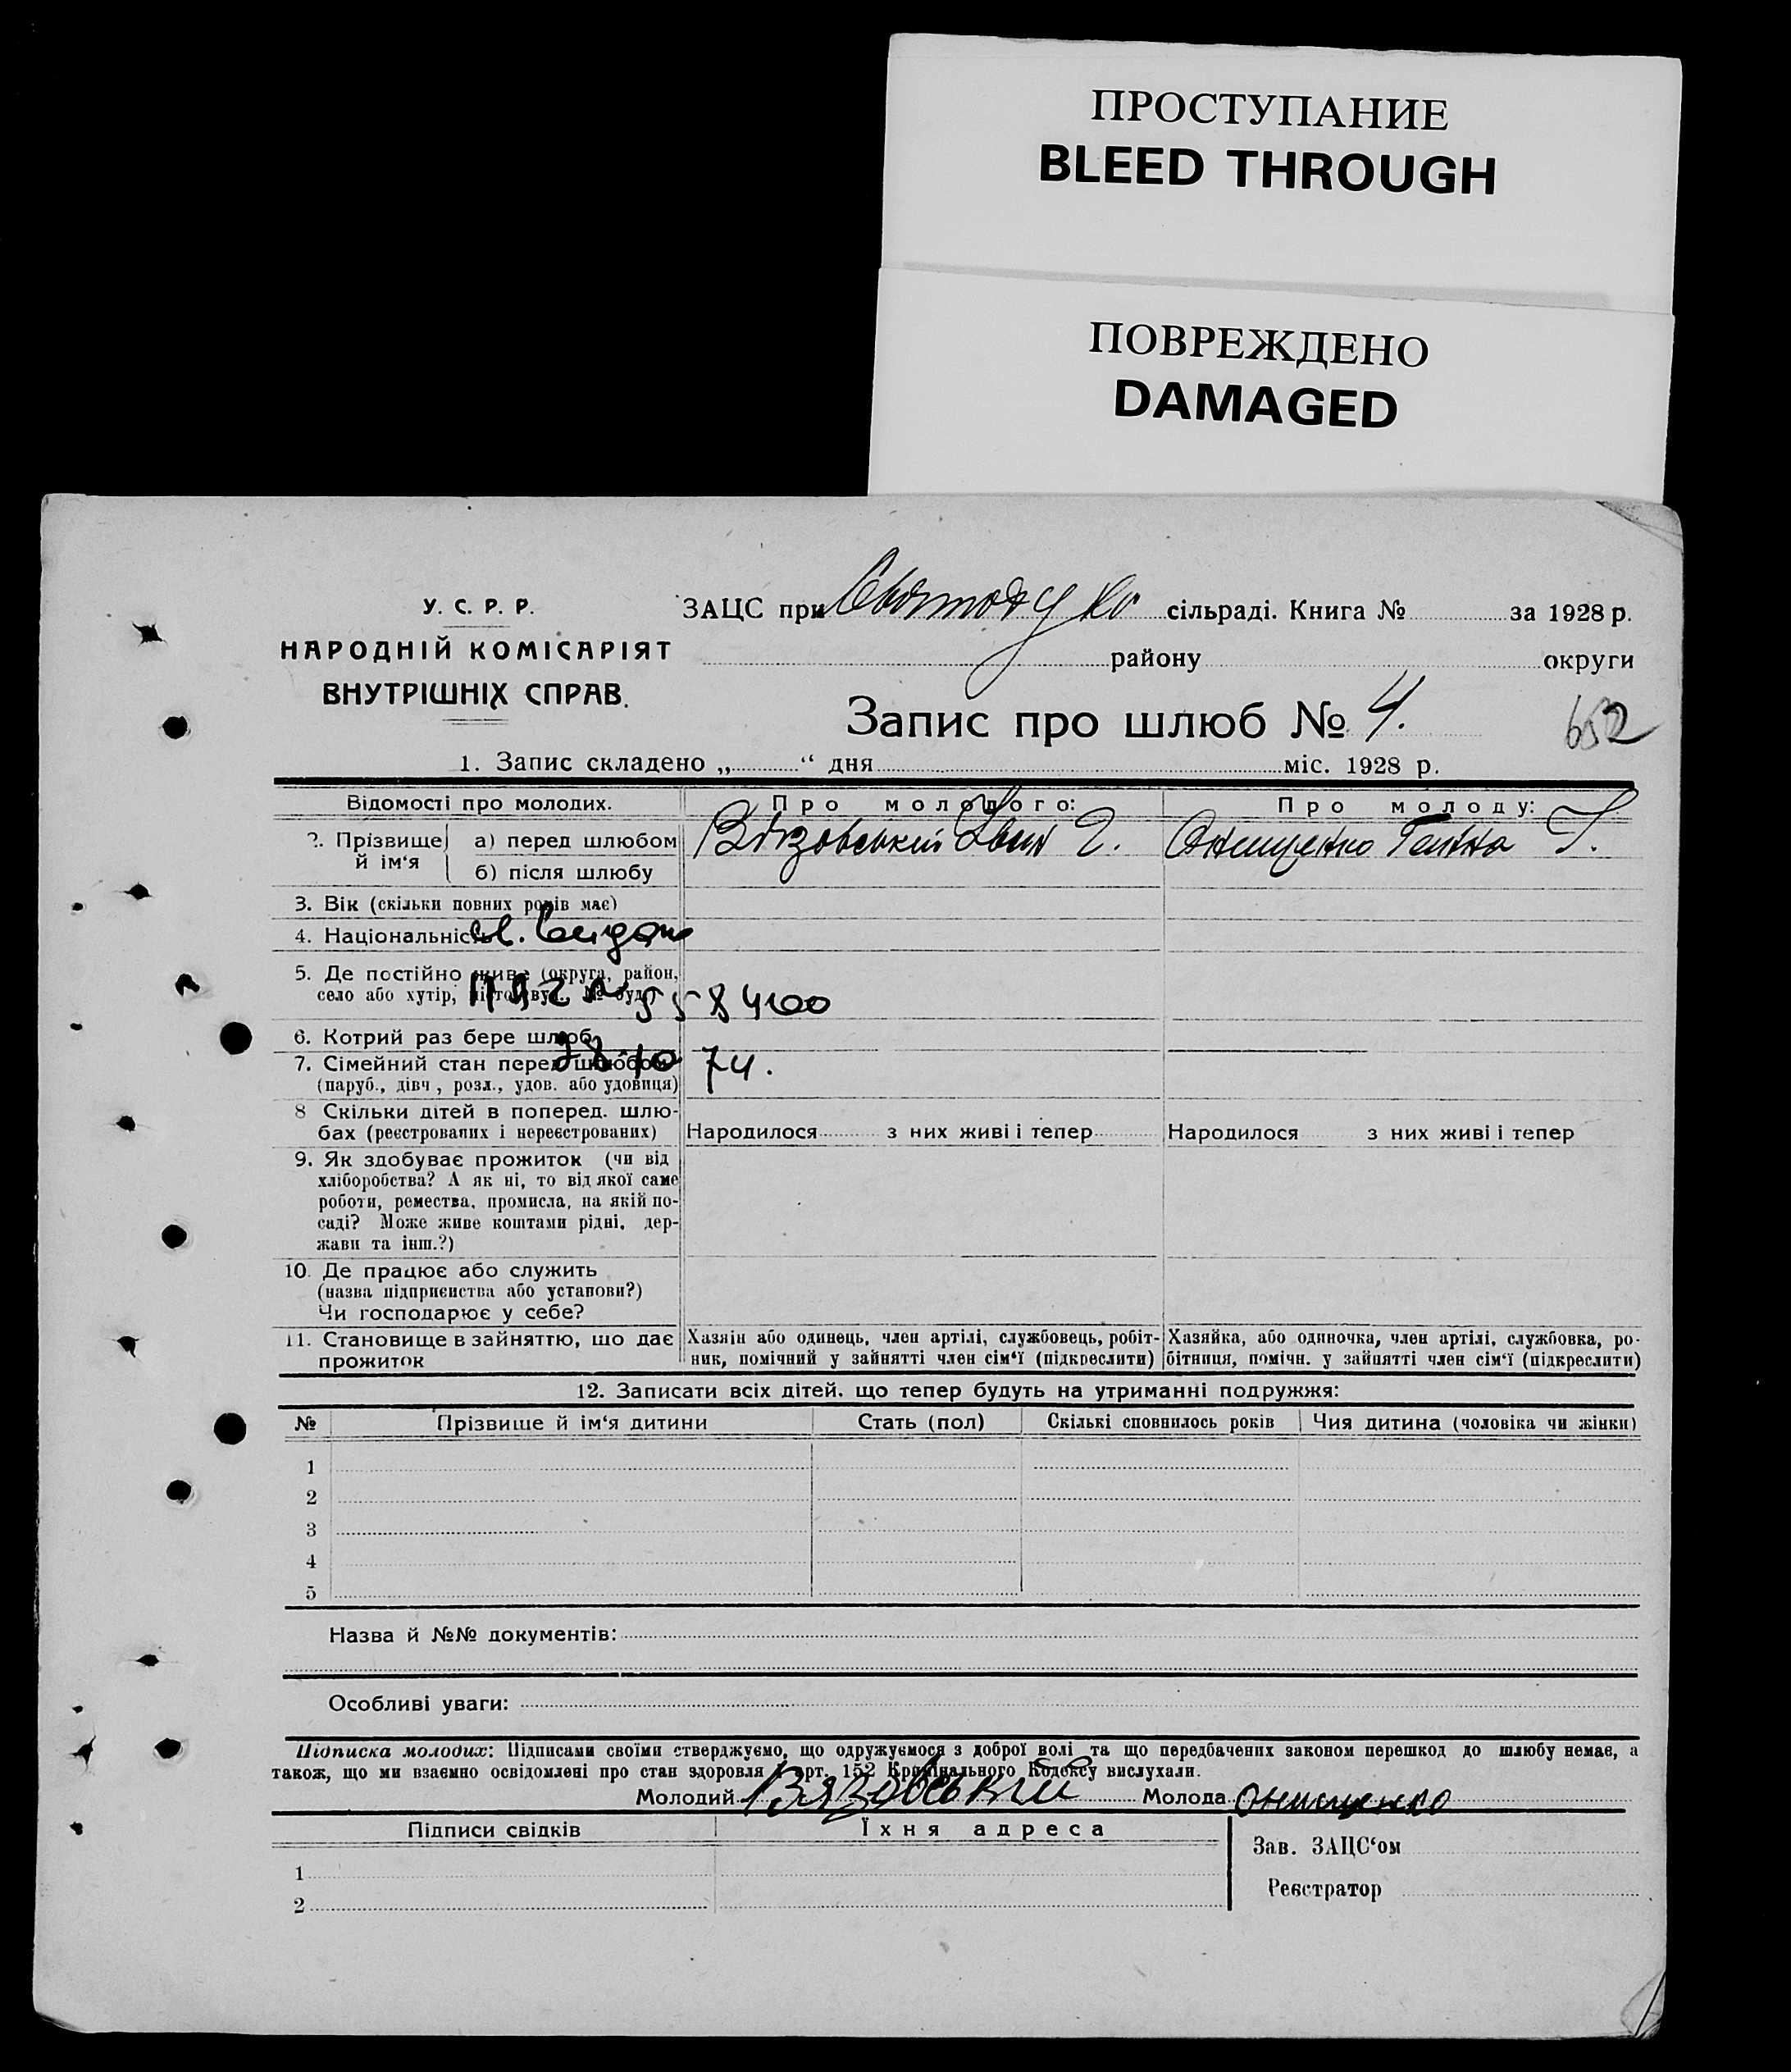 ПРОСТУПАНИЕ
BLEED THROUGH
ПОВРЕЖДЕНО
DAMAGED
У. С. Р. Р.
НАРОДНІЙ КОМІСАРІЯТ
ВНУТРІШНІХ СПРАВ.
ЗАЦС при сільраді. Книга № за 1928 р.
району округи
Запис про шлюб № 4.
652
1. Запис складено „ “ дня міс. 1928 р.
Відомості про молодих. Про молодого: Про молоду:
2. Прізвище й ім‘я а) перед шлюбом Вязовський Іван Онищенко Галина
б) після шлюбу
3. Вік (скільки повних років має)
4. Національність
5. Де постійно живе (округа, район,
село або хутір, місто, вул., № буд.)
558400
6. Котрий раз бере шлюб
7. Сімейний стан перед шлюбом
28 10 74.
(паруб., дівч, розл., удов. або удовиця)
8 Скільки дітей в поперед. шлю-
бах (реєстрованих і нереєстрованих) Народилося з них живі і тепер Народилося з них живі і тепер
9. Як здобуває прожиток (чи від
хліборобства? А як ні, то від якої саме
роботи, ремества, промисла, на якій по-
саді? Може живе коштами рідні, дер-
жави та інш.?)
10. Де працює або служить
(назва підприєнства або установи?)
Чи господарює у себе?
11. Становище в зайняттю, що дає
прожиток
Хазяін або одинець, член артілі, службовець, робіт-
ник, помічний у зайнятті член сім‘ї (підкреслити)
Хазяйка, або одиночка, член артілі, службовка, ро-
бітниця, помічн. у зайнятті член сім‘ї (підкреслити)
12. Записати всіх дітей, що тепер будуть на утриманні подружжя:
№ Прізвище й ім‘я дитини Стать (пол) Скількі сповнилось років Чия дитина (чоловіка чи жінки)
1
2
3
4
5
Назва й №№ документів:
Особливі уваги:
Підписка молодих: Підписами своїми стверджуємо, що одружуємося з доброї волі та що передбачених законом перешкод до шлюбу немає, а
також, що ми взаємно освідомлені про стан здоровля і арт. 152 Кримінального Кодексу вислухали.
Молодий Вязовський Молода Онищенко
Підписи свідків Їхня адреса
Зав. ЗАЦС‘ом
1
Реєстратор
2